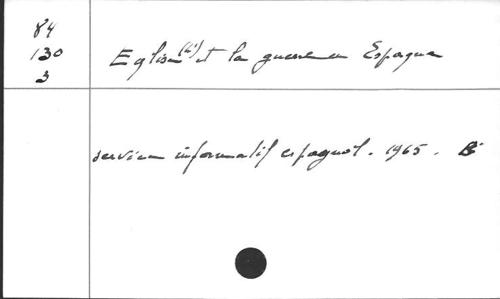 84
130
3
Eglise (L') et la guerre en Espagne
service informatif espagnol. 1965. Br